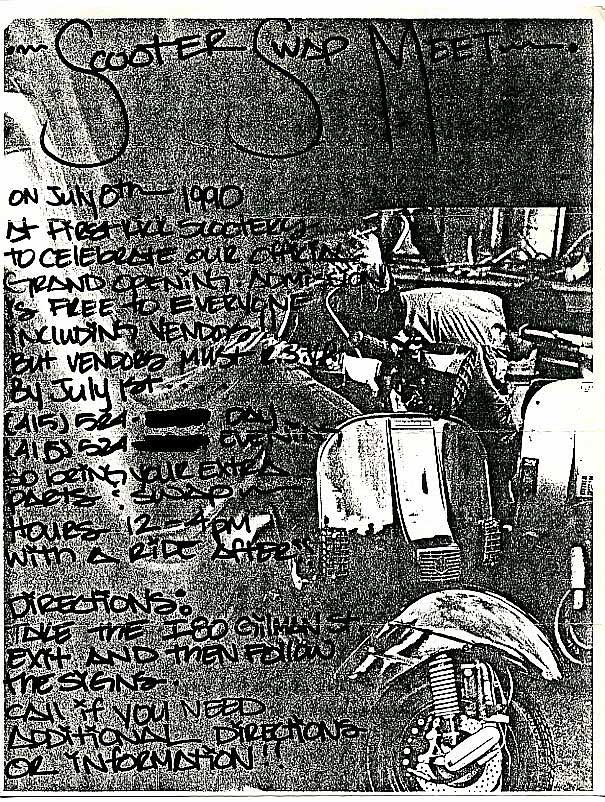 SCOOTER SWAP MEET
ON July 8th 1990
AT FIRST KICK SCOOTERS
TO CELEBRATE OUR OFFICIAL
GRAND OPENING. ADMISSION
IS FREE TO EVERYONE
INCLUDING VENDORS!
BUT VENDORS MUST R.S.V.P.
By July 1st
(415) 524- DAY
(415) 524- EVENING
SO BRING YOUR EXTRA
PARTS & SWAP
HOURS 12-4PM
WITH A RIDE AFTER!!
DIRECTIONS:
TAKE THE I-80 Gilman St
EXIT AND THEN FOLLOW
THE SIGNS.
CALL if YOU NEED
ADDITIONAL DIRECTIONS
OR INFORMATION!!